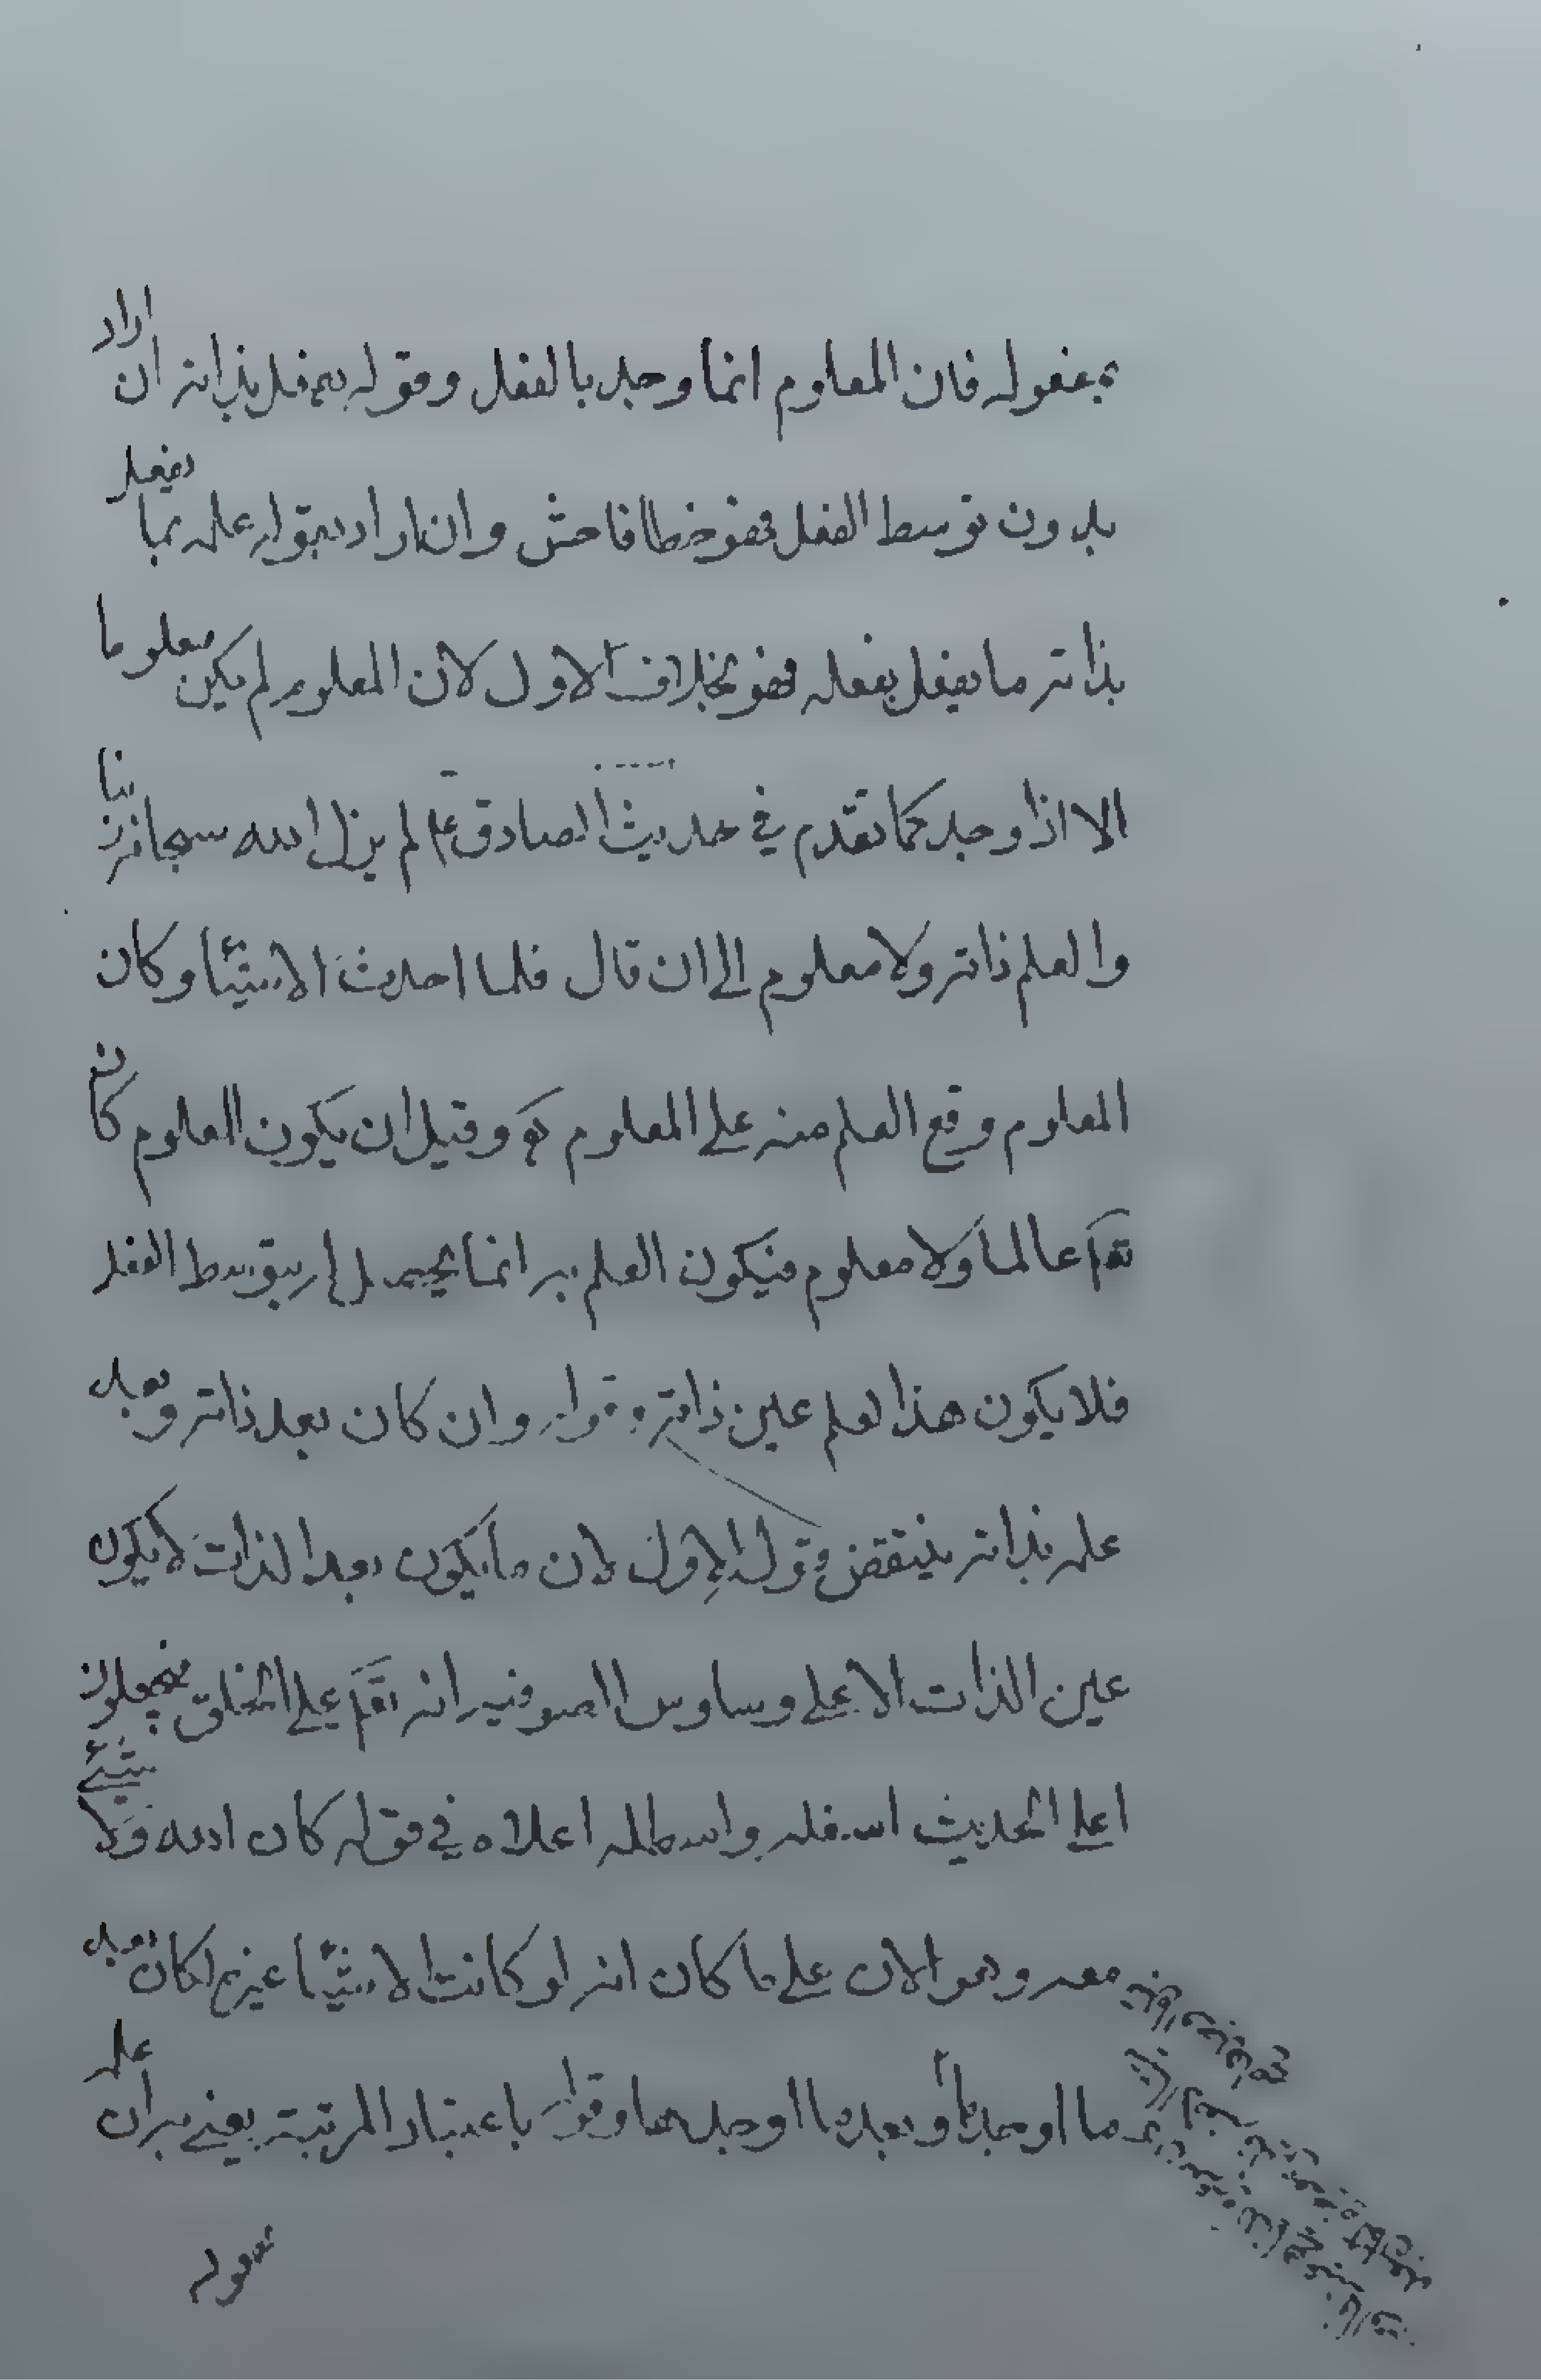 بمفعوله فان المعلوم انما وجد بالفعل وقوله بم فعل بذاته ان اراد
بدون توسط الفعل فهو خطا فاحش وان اراد بقوله علمه بما يفعل
بذاته ما يفعل بفعله فهو بخلاف الاول لان المعلوم لم يكن معلوما
الا اذا وجد كما تقدم في حديث الصادق ع لم يزل الله سبحانه ربنا
والعلم ذاته ولا معلوم الى ان قال فلما احدث الاشيئا وكان
المعلوم وقع العلم منه على المعلوم وقبل ان يكون المعلوم كان
تعا عالما ولا معلوم فيكون العلم به انما يحصل له بتوسط الفعل
فلا يكون هذا لعلم عين ذاته وقوله وان كان بعد ذاته وبعد
علمه بذاته ينتقض وقوله الاول لان ما يكون بعد الذات لا يكون
عين الذات الا على وساوس الصوفيه انه تقدم على الخلق فيجعلون
اعلى الحديث اسفله واسفله اعلاه في قوله كان الله ولا شيئ
معه وهو الان على ما كان انه لو كانت الاشيئا غيره لكان بعد
ما اوجدها وبعد ما اوجدها وقوله باعتبار المرتبة يعني به ان علمه